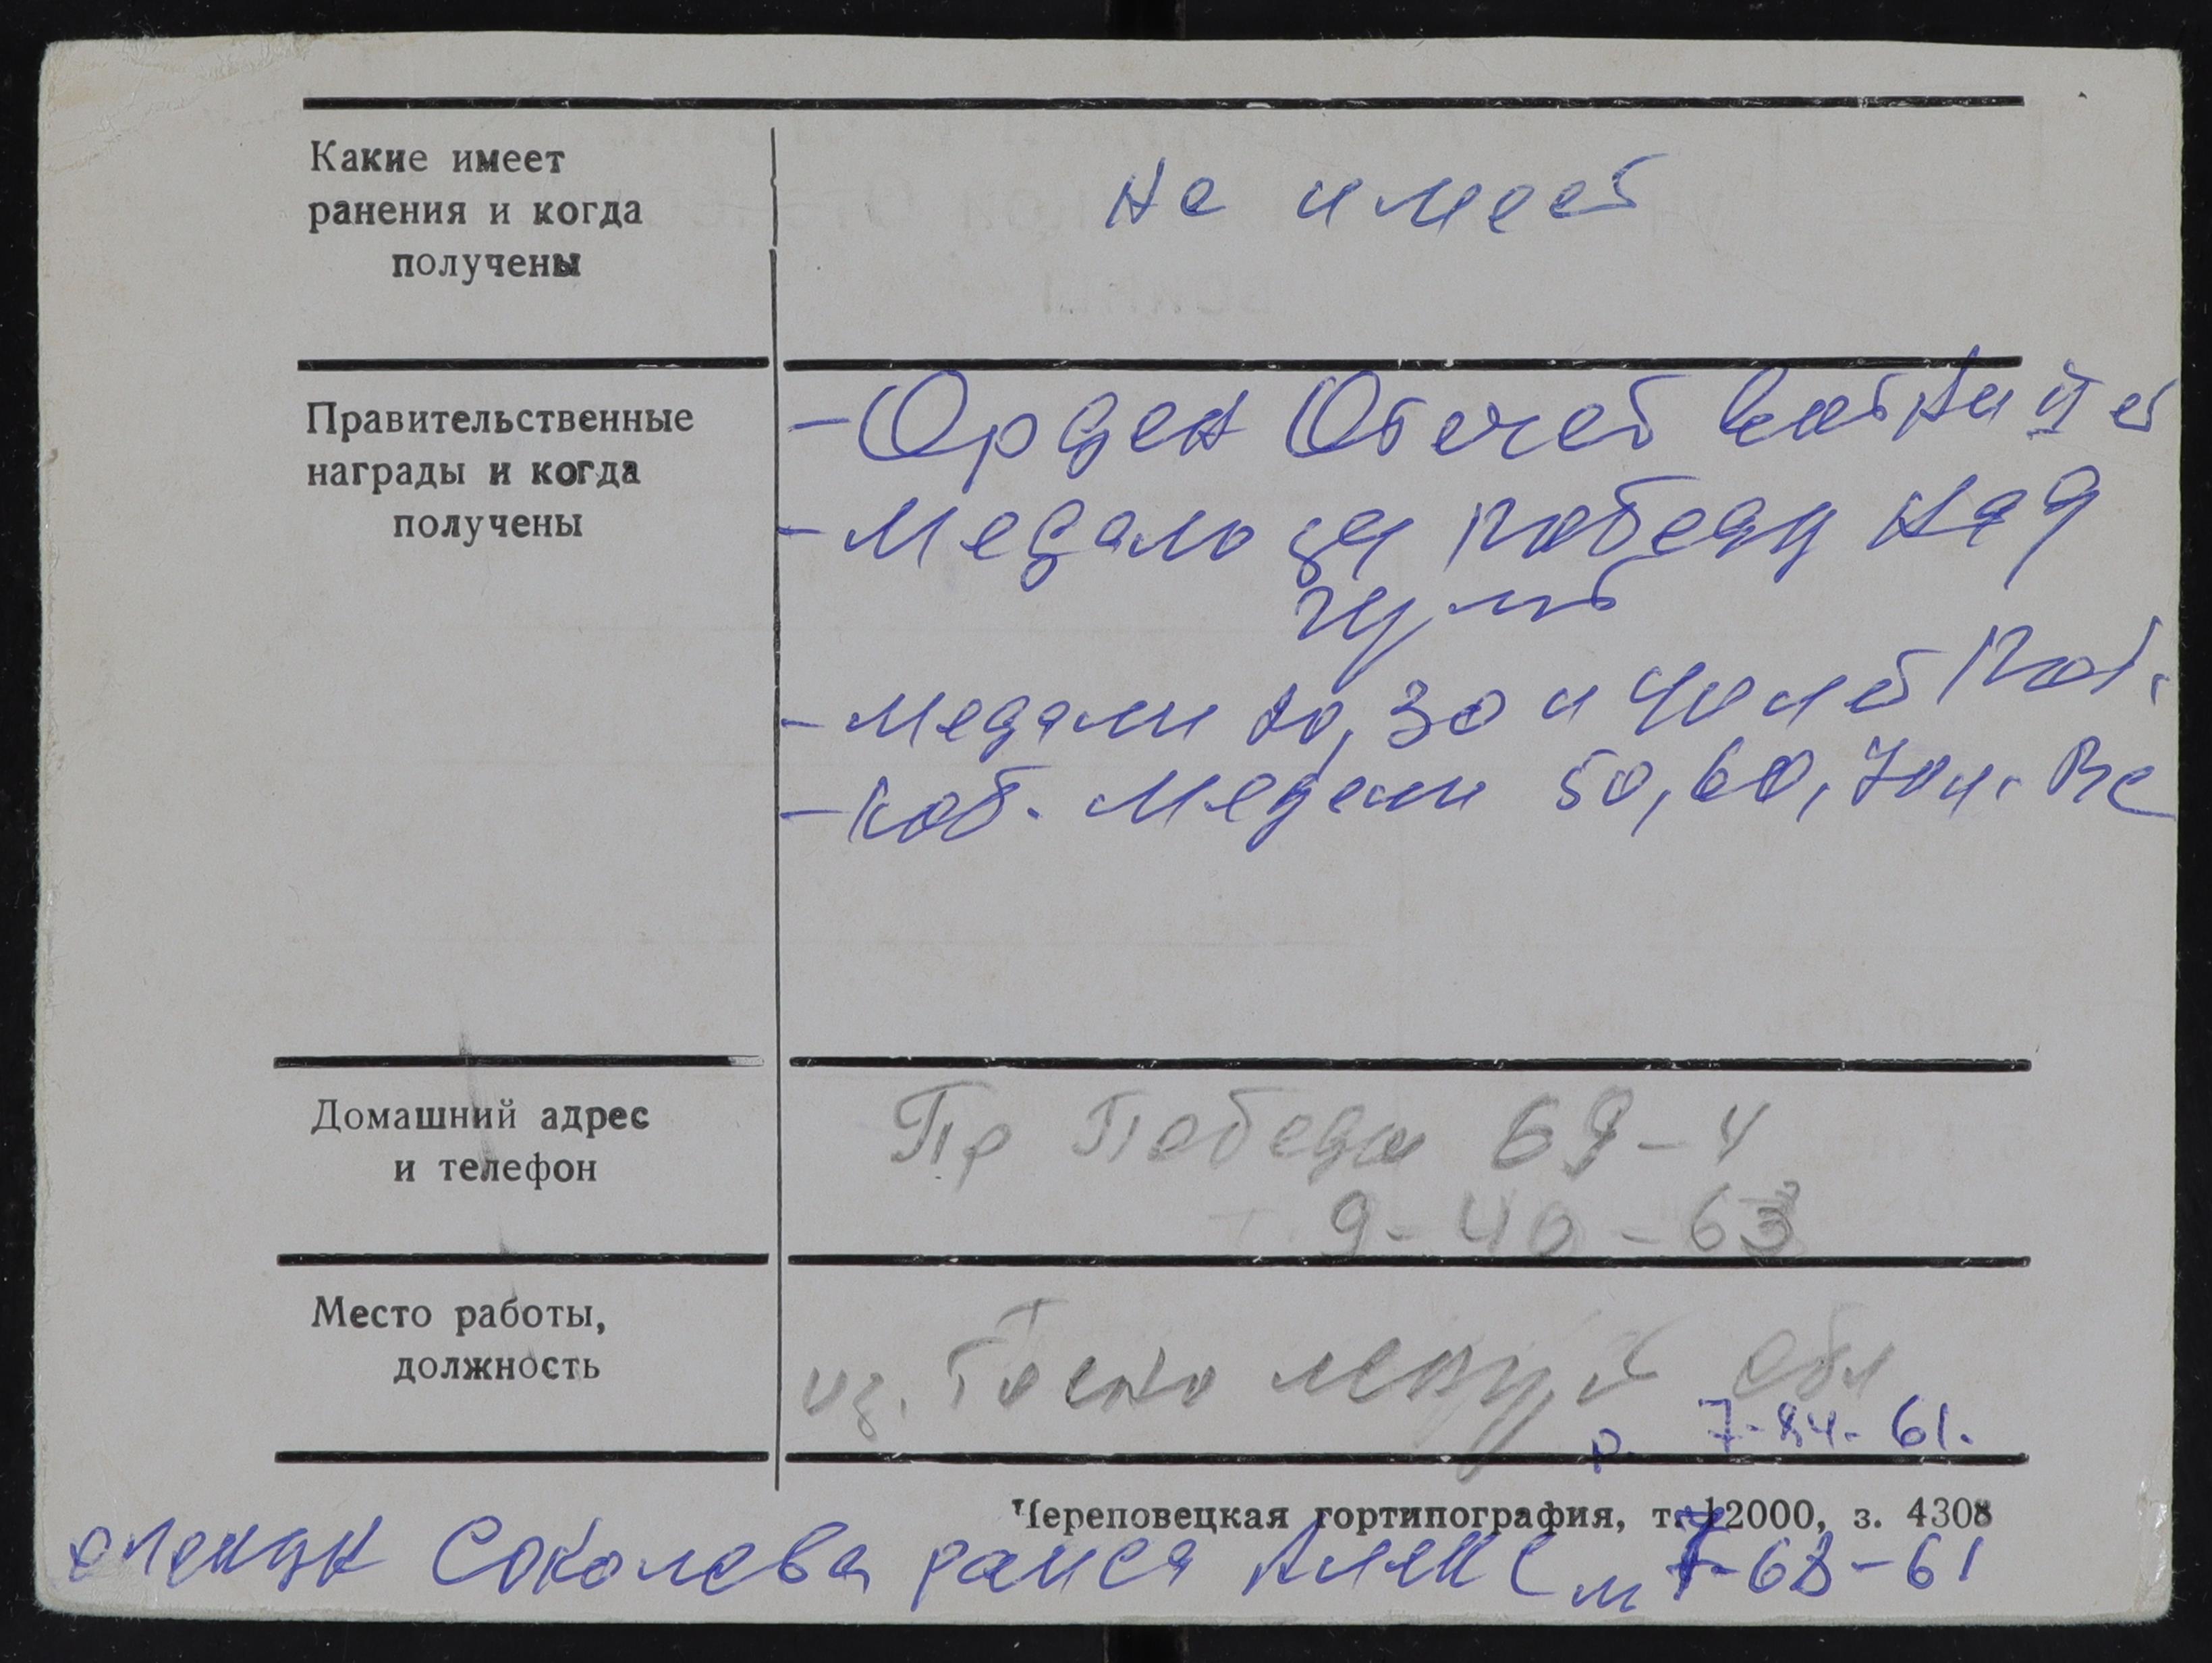 Какие имеет
ранения и когда
получены
не имеет
Правительственные
награды и когда
получены
- Орден Отечеств войны II ст
- Медаль за победу над
- медали 20, 30 и 40 лет Поб.
- юб. медали 50, 60, 70 л. ВС
Домашний адрес
и телефон
Пр Победы 69-4
т. 9-40-63
Место работы,
должность
из. Тосно обл
р. 7-84-61.
Череповецкая гортипография, т. 12000, з. 4308
опекун Соколова раиса Алекс м 7-68-61